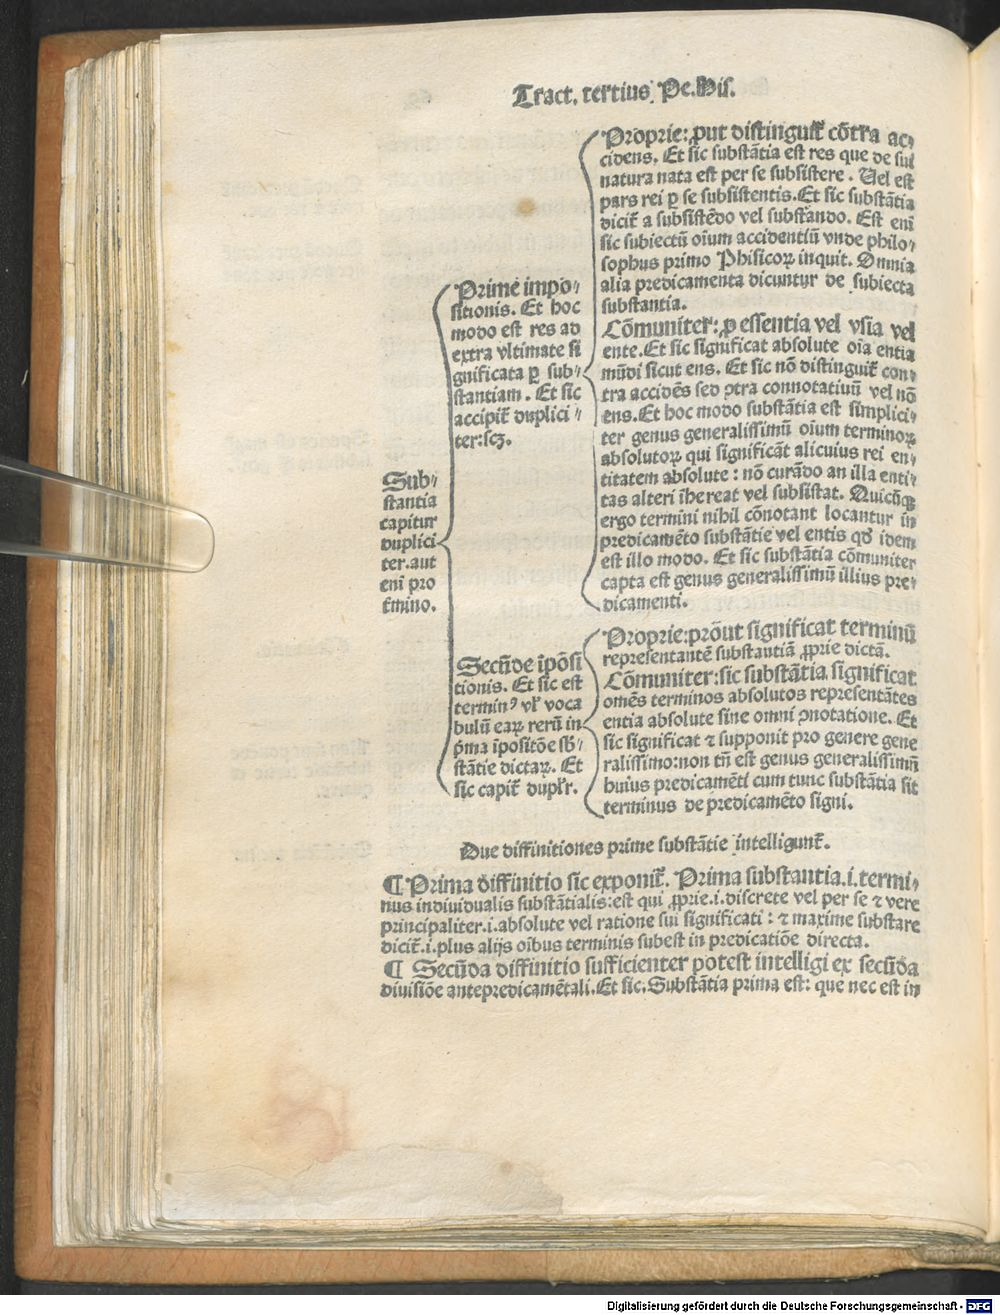 Tract. tertius. Pe. His.
Sub⸗
stantia
capitur
duplici
ter. aut
eni͂ pro
t͂mino.
Prime impo⸗
sitionis. Et hoc
modo est res ad
extra vltimate si
gnificata ꝑ sub⸗
stantiam. Et sic
accipit͂ duplici⸗
ter: scꝫ.
Proprie: ꝓut distinguit͂ cōtra ac⸗
cidens. Et sic substātia est res que de sui
natura nata est per se subsistere. Uel est
pars rei ꝑ se subsistentis. Et sic substātia
dicit͂ a subsistēdo vel substando. Est eni͂
sic subiectū oīum accidentiū vnde philo⸗
sophus primo Phisicoꝝ inquit. Omnia
alia predicamenta dicuntur de subiecta
substantia.
Cōmuniter: ꝓ essentia vel vsia vel
ente. Et sic significat absolute oīa entia
mūdi sicut ens. Et sic nō distinguit͂ con⸗
tra accidēs sed ꝯtra connotatiuū vel nō
ens. Et hoc modo substātia est simplici⸗
ter genus generalissimū oīum terminoꝝ
absolutoꝝ qui significāt alicuius rei en⸗
titatem absolute: nō curādo an illa enti⸗
tas alteri īhereat vel subsistat. Quicūqꝫ
ergo termini nihil cōnotant locantur in
predicamēto substātie vel entis qd͂ idem
est illo modo. Et sic substātia cōmuniter
capta est genus generalissimū illius pre⸗
dicamenti.
Secūde īpōsi
tionis. Et sic est
terminꝰ vl͂ voca
bulū eaꝝ rerū in
p͂ma īpositōe sb͂⸗
stātie dictaꝝ. Et
sic capit͂ dupl͂r.
Proprie: prōut significat terminū
representantē substantiā ꝓprie dictā.
Cōmuniter: sic substātia significat
omēs terminos absolutos representātes
entia absolute sine omni ꝯnotatione. Et
sic significat ⁊ supponit pro genere gene
ralissimo: non tn͂ est genus generalissimū
huius predicamēti cum tunc substātia sit
terminus de predicamēto signi.
Due diffinitiones prime substātie intelligunt͂.
¶ Prima diffinitio sic exponit͂. Prima substantia .i. termi⸗
nus indiuidualis substātialis: est qui ꝓprie .i. discrete vel per se ⁊ vere
principaliter .i. absolute vel ratione sui significati: ⁊ maxime substare
dicit͂ .i. plus alijs oībus terminis subest in predicatiōe directa.
¶ Secūda diffinitio sufficienter potest intelligi ex secūda
diuisiōe antepredicamētali. Et sic. Substātia prima est: que nec est in
Digitalisierung gefördert durch die Deutsche Forschungsgemeinschaft - DFG